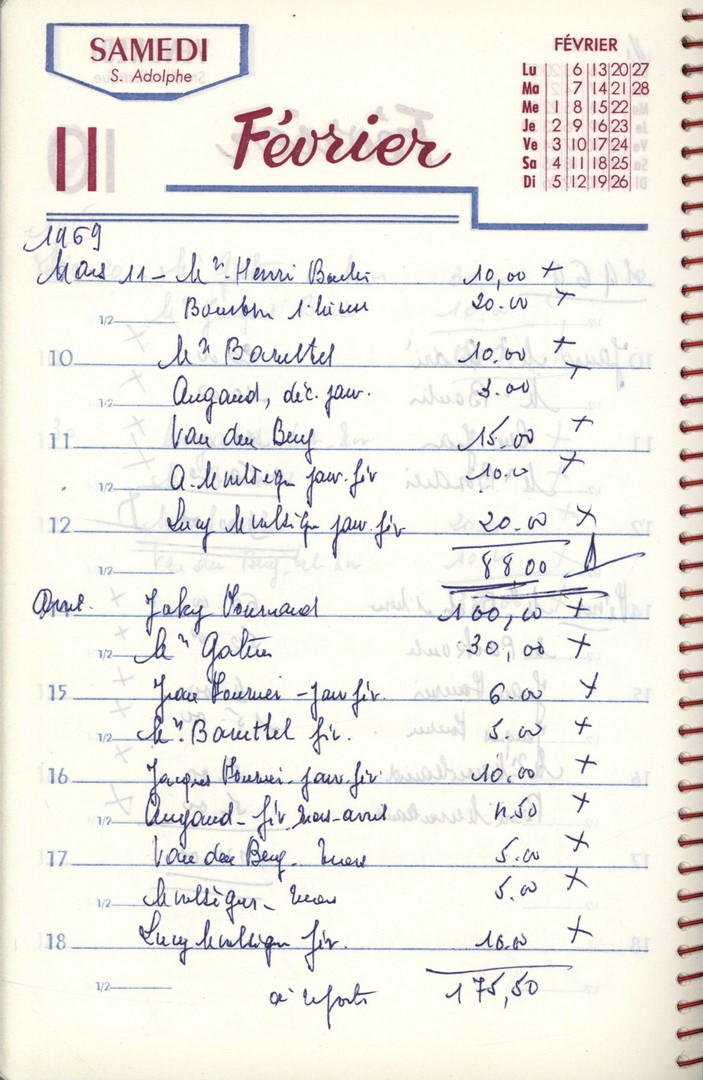 SAMEDI
S. Adolphe
11
Février
FÉVRIER
Lu 6 13 20 27
Ma 7 14 21 28
Me 1 8 15 22
Je 2 9 16 23
Ve 3 10 17 24
Sa 4 11 18 25
Di 5 12 19 26
1969
Mars 11 - Mr. Henri 10,00 +
1/2 20.00 +
10 Mr 10.00 +
1/2 Augaud, déc. janv. 3.00 +
11 Van den Berg 15.00 +
1/2 A. janv. fév 10.00 +
12 Lucy janv. fév 20.00 +
1/2 88,00
Avril. Jaky 100,00 +
1/2 Mr 30,00 +
15 Jean - janv fév. 6.00 +
1/2 Mr. fév. 5.00 +
16 Jacques - janv. fév. 10.00 +
1/2 Augaud - fév. mars - avril 4.50 +
17 Van den Berg - Mars 5.00 +
1/2 - Mars 5.00 +
18 Lucy fév. 10.00 +
1/2 à reporter 175,50